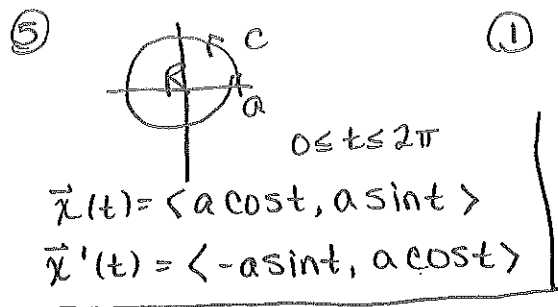 ⑤ C ①
R
a
0 ≤ t ≤ 2π
x⃗(t) = <a cos t, a sin t>
x⃗'(t) = <-a sin t, a cos t>